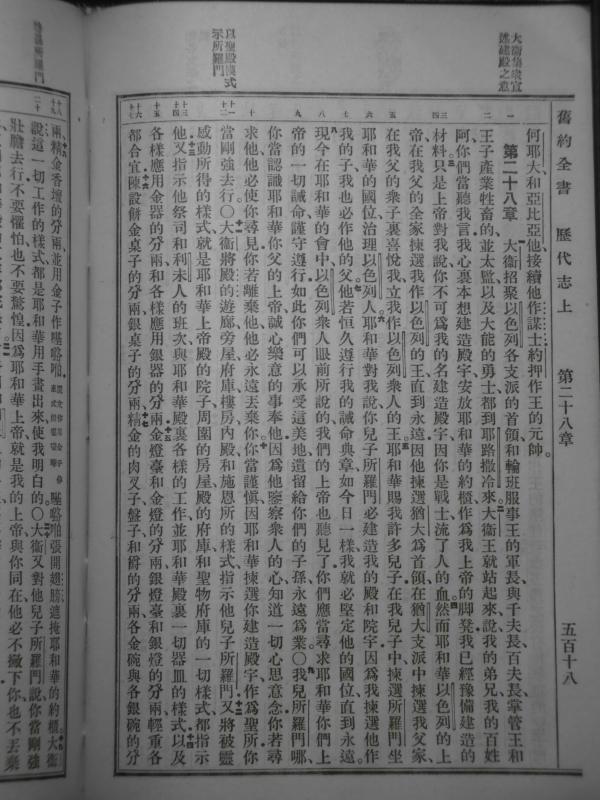 舊約全書 歷代志上 第二十八章 五百十八
大衛集衆宣
述建殿之意
以聖殿模式
示所羅門
何耶大和亞比亞他接續他作謀士約押作王的元帥。
第二十八章 大衛招聚以色列各支派的首領和輪班服事王的軍長與千夫長百夫長掌管王和
王子產業牲畜的並太監以及大能的勇士都到耶路撒冷來大衛王就站起來說我的弟兄我的百姓
阿你們當聽我言我心裏本想建造殿宇安放耶和華的約櫃作爲我上帝的脚凳我已經豫備建造的
材料只是上帝對我說你不可爲我的名建造殿宇因你是戰士流了人的血然而耶和華以色列的上
帝在我父的全家揀選我作以色列的王直到永遠因他揀選猶大爲首領在猶大支派中揀選我父家
在我父的衆子裏喜悅我立我作以色列衆人的王耶和華賜我許多兒子在我兒子中揀選所羅門坐
耶和華的國位治理以色列人耶和華對我說你兒子所羅門必建造我的殿和院宇因爲我揀選他作
我的子我也必作他的父他若恒久遵行我的誡命典章如今日一樣我就必堅定他的國位直到永遠。
現今在耶和華的會中以色列衆人眼前所說的我們的上帝也聽見了你們應當尋求耶和華你們上
帝的一切誡命謹守遵行如此你們可以承受這美地遺留給你們的子孫永遠爲業〇我兒所羅門哪
你當認識耶和華你父的上帝誠心樂意的事奉他因爲他鑒察衆人的心知道一切心思意念你若尋
求他他必使你尋見你若離棄他他必永遠丟棄你你當謹愼因耶和華揀選你建造殿宇作爲聖所你
當剛強去行〇大衛將殿的遊廊旁屋府庫樓房內殿和施恩所的樣式指示他兒子所羅門又將被靈
感動所得的樣式就是耶和華上帝殿的院子周圍的房屋殿的府庫和聖物府庫的一切樣式都指示
他又指示他祭司和利未人的班次與耶和華殿裏各樣的工作並耶和華殿裏一切器皿的樣式以及
各樣應用金器的分兩和各樣應用銀器的分兩金燈臺和金燈的分兩銀燈臺和銀燈的分兩輕重各
都合宜陳設餅金桌子的分兩銀桌子的分兩精金的肉叉子盤子和爵的分兩各金碗與各銀碗的分
兩精金香壇的分兩並用金子作㗭𡀔㗭𡀔張開翅膀遮掩耶和華的約櫃大衛
說這一切工作的樣式都是耶和華用手畫出來使我明白的〇大衛又對他兒子所羅門說你當剛強
壯膽去行不要懼怕也不要驚惶因爲耶和華上帝就是我的上帝與你同在他必不撇下你也不丟棄